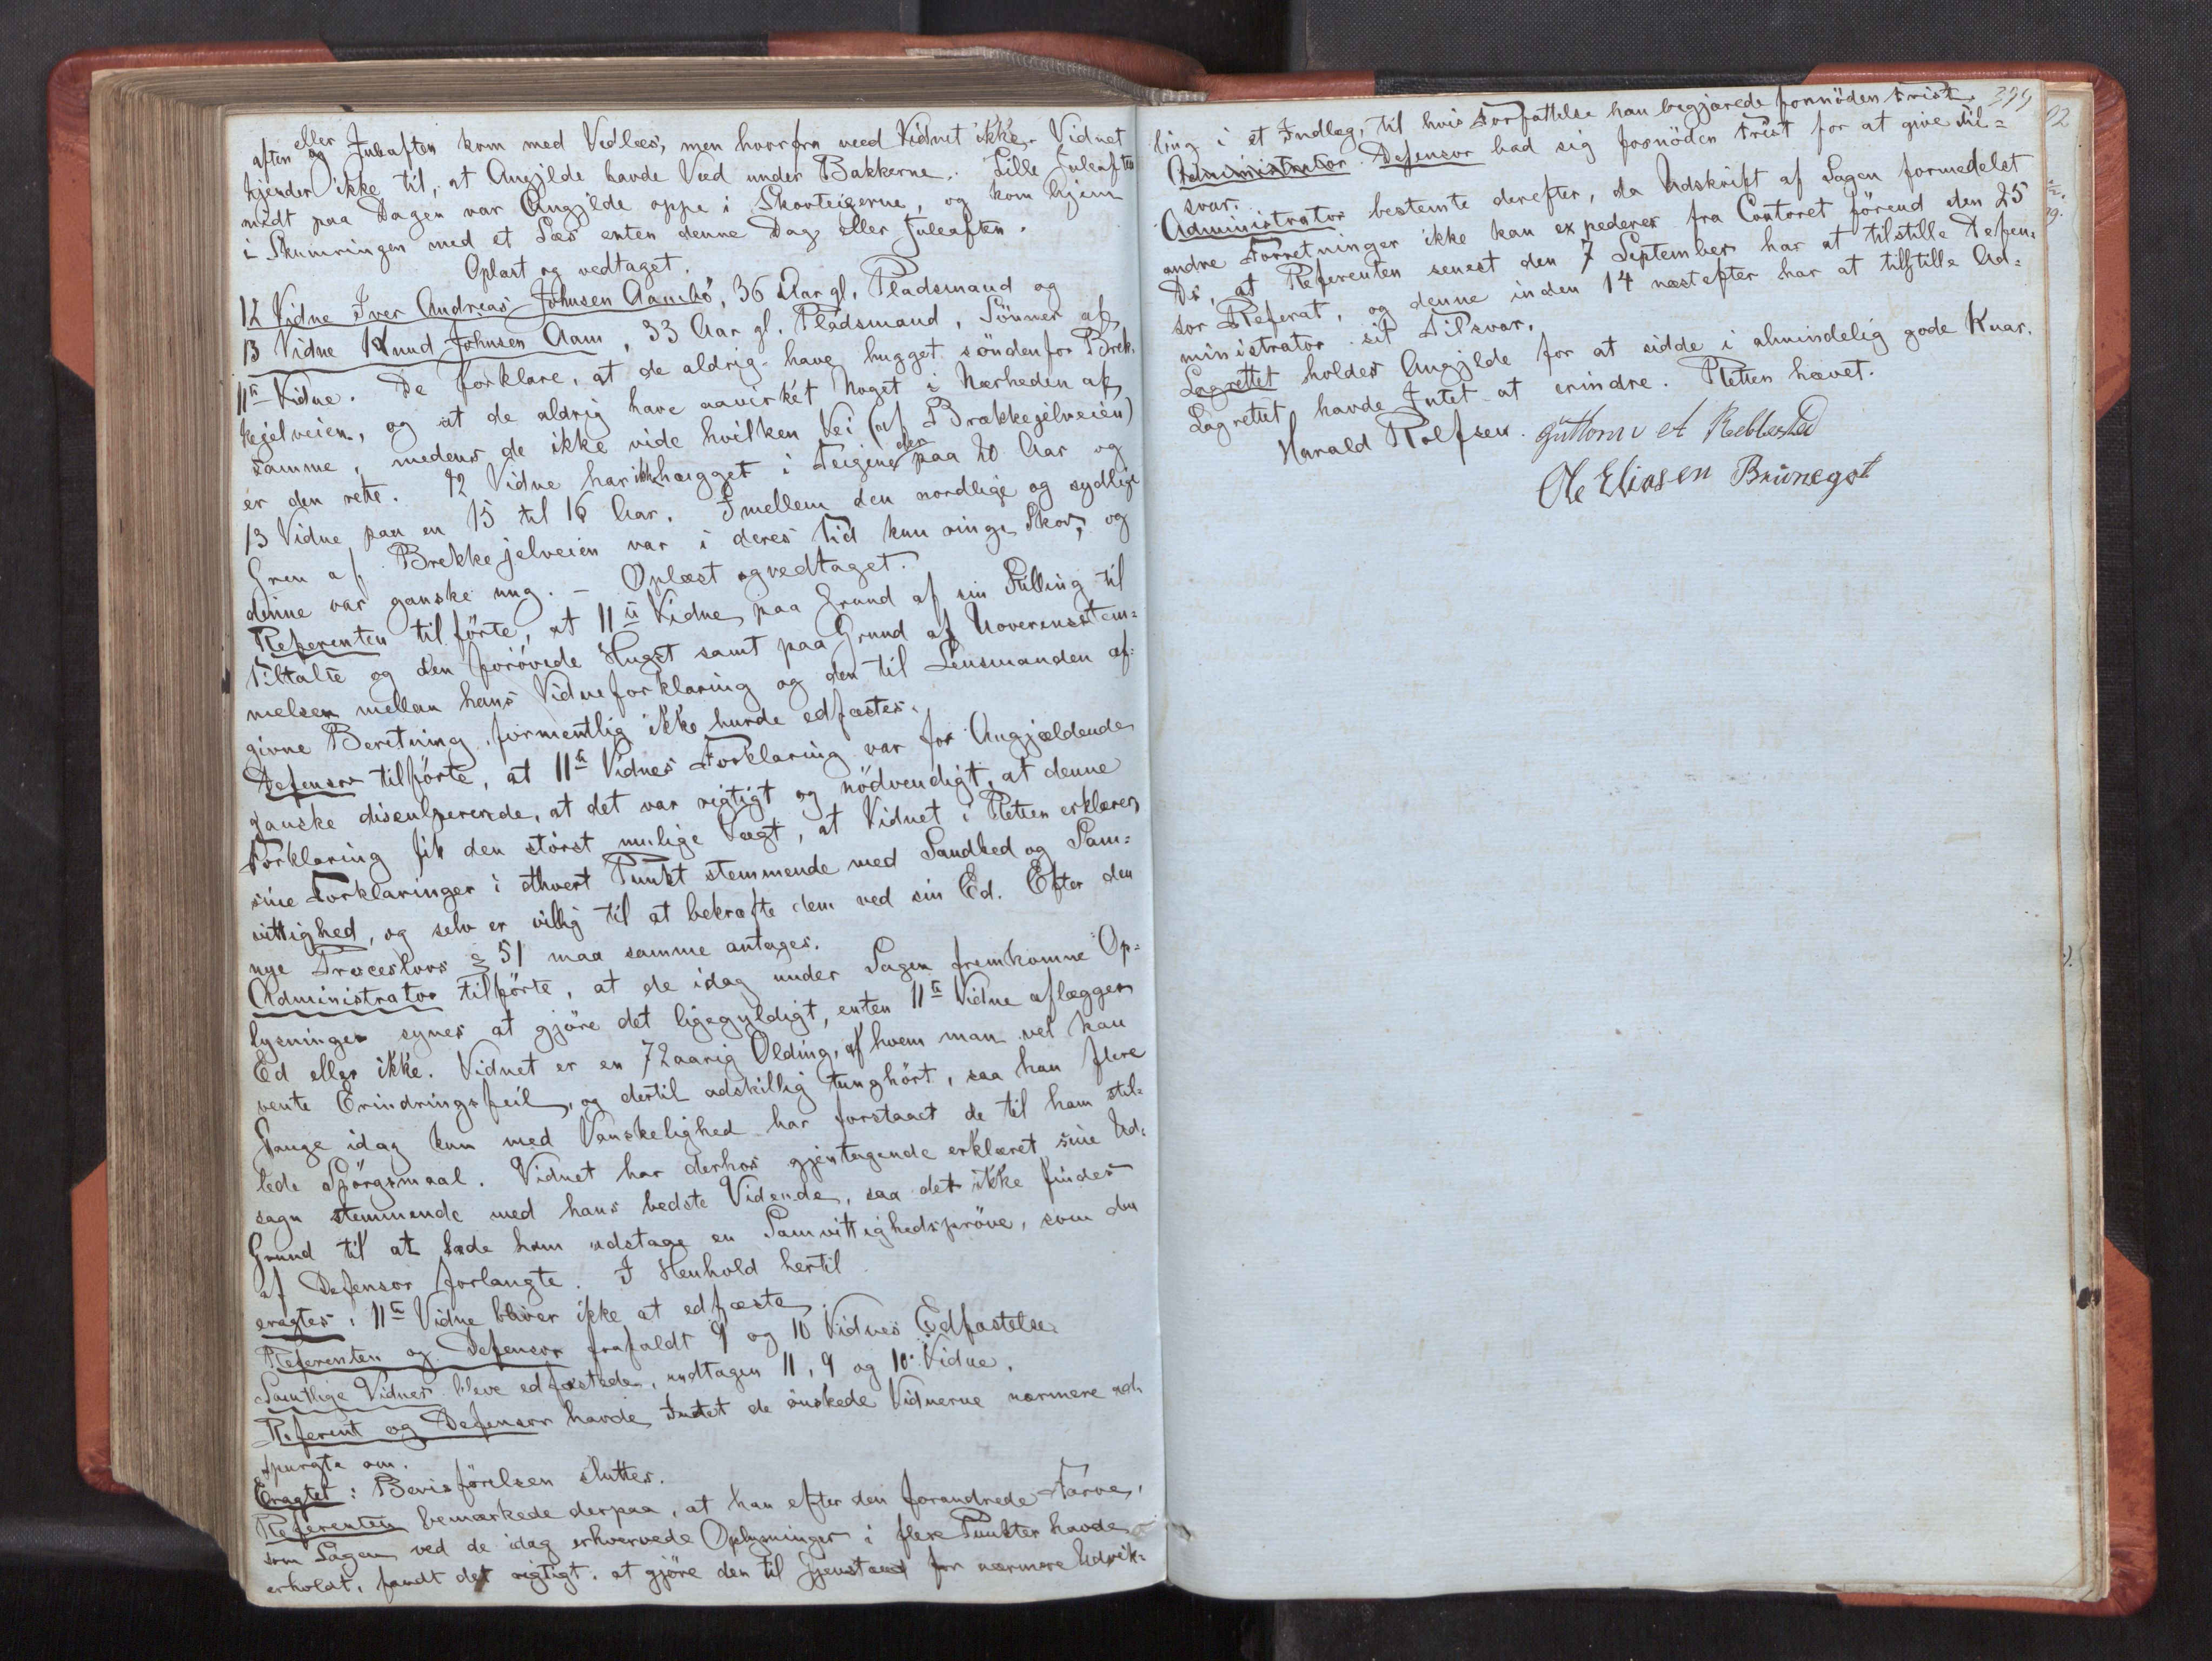 aften eller Juleaften kom med Vedlæs, men hvorfra veed Vidnet ikke. Vidnet
kjender ikke til, at Angjldе havde Ved under Bakkerne. Lille Juleaften
midt paa Dagen var Angjlde oppe i Skovteigerne, og kom hjem
i Skumringen med et Læs enten denne Dag eller Juleaften.
Oplæst og vedtaget.
12 Vidne Iver Andreas Johnsen Aambö, 36 Aar gl. Pladsmand og
13 Vidne Knud Johnsen Aam, 33 Aar gl. Pladsmand, Sönner af
11te Vidne. De forklare, at de aldrig have hugget söndenfor Brek-
kejelveien, og at de aldrig have aavirket Noget i Nærheden af
samme, medens de ikke vide hvilken Vei (af Brækkejelveien)
er den rette. 12 Vidne har ikke hugget i Teigene der paa 20 Aar og
13 Vidne paa en 15 til 16 Aar. Imellem den nordlige og sydlige
Gren af Brekkejelveien var i deres Tid kun ringe Skov, og
denne var ganske ung. - Oplæst og vedtaget.
Referenten tilförte, at 11te Vidne paa Grund af sin Stilling til
Tiltalte og den forövede Hugst samt paa Grund af Uoverensstem=
melsen mellem hans Vidneforklaring og den til Lensmanden af=
givne Beretning formentlig ikke burde edfæstes.
Defensor tilförte, at 11te Vidnes Forklaring var for Angjældende
ganske disculperende, at det var rigtigt og nödvendigt, at denne
Forklaring fik den störst mulige Vægt, at Vidnet i Retten erklærer
sine Forklaringer i ethvert Punkt stemmende med Sandhed og Sam=
vittighed, og selv er villig til at bekræfte dem ved sin Ed. Efter den
nye Proceslovs § 51 maa samme antages.
Administrator tilförte, at de idag under Sagen fremkomne Op=
lysninger synes at gjöre det ligegyldigt, enten 11te Vidne aflægger
Ed eller ikke. Vidnet er en 72aarig Olding, af hvem man vel kan
vente Erindringsfeil, og dertil adskillig tunghört, saa han flere
Gange idag kun med Vanskelighed har forstaaet de til ham stil=
lede Spörgsmaal. Vidnet har derhos gjentagende erklæret sine Ud=
sagn stemmende med hans bedste Vidende, saa det ikke findes
Grund til at lade ham udstage en Samvittighedspröve, som den
af Defensor forlangte. I Henhold hertil
eragtes: 11te Vidne bliver ikke at edfæste.
Referenten og Defensor frafaldt 9 og 10 Vidnes Edfæstelse.
Samtlige Vidner bleve edfæstede, undtagen 11, 9 og 10 Vidne.
Referent og Defensor havde Intet de önskede Vidnerne nærmere ud=
spurgte om.
Eragtet: Bevisförelsen sluttes.
Referenten bemærkede derpaa, at han efter den forandrede Farve,
som Sagen ved de idag erhvervede Oplysninger i flere Punkter havde
erholdt, fandt det rigtigt, at gjöre den til Gjenstand for nærmere Udvik=
299
ling i et Indlæg, til hvis Forfattelse han begjærede fornöden Frist.
Administrator Defensor bad sig fornöden Frist for at give Til=
svar.
Administrator bestemte derefter, da Udskrift af Sagen formedelst
andre Forretninger ikke kan expederes fra Contoret förend den 25
Ds, at Referenten senest den 7 September har at tilstille Defen=
sor Referat, og denne inden 14 næstefter har at tilstille Ad=
ministrator sit Tilsvar.
Lagrettet holder Angjlde for at sidde i almindelig gode Kaar.
Lagrettet havde Intet at erindre. Retten hævet.
Harald Rolfsen. Guttorm
Ole Eliasen
92